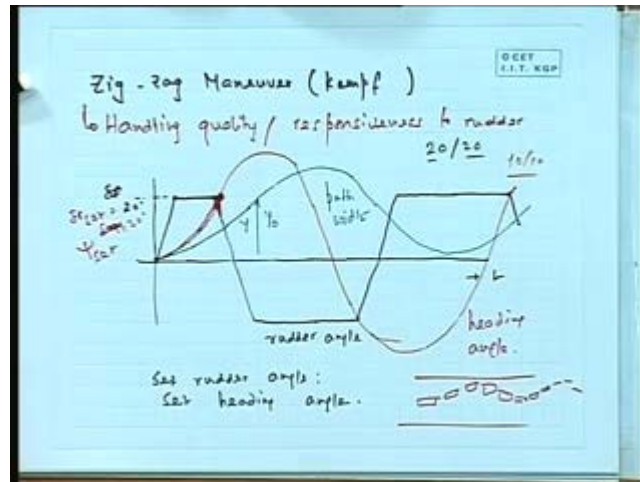 © CET
I.I.T. KGP
Zig-Zag Maneuver (Kempf)
↳ Handling quality / responsiveness to rudder
20/20
10/10
δr
δr set = 20°
ψset
y
y₀
path
width
→ t
rudder angle
heading
angle.
Set rudder angle:
Set heading angle.